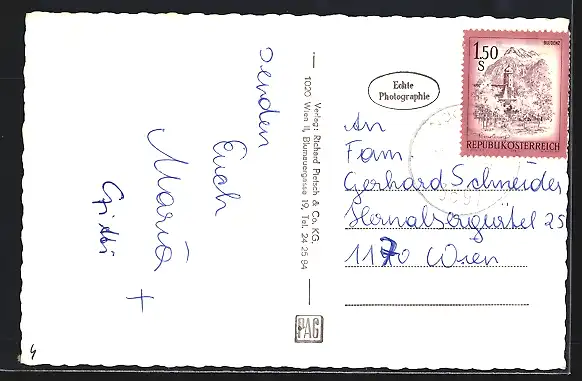 senden
Euch
Maria +
Gitti
Verlag: Richard Pietsch & Co. KG.
1020 Wien II, Blumauergasse 19, Tel. 24 25 94
PAG
Echte
Photographie
1.50
S
BLUDENZ
REPUBLIK ÖSTERREICH
An
Fam
Gerhard Schneider
Hernalsergürtel 25
1170 Wien
4